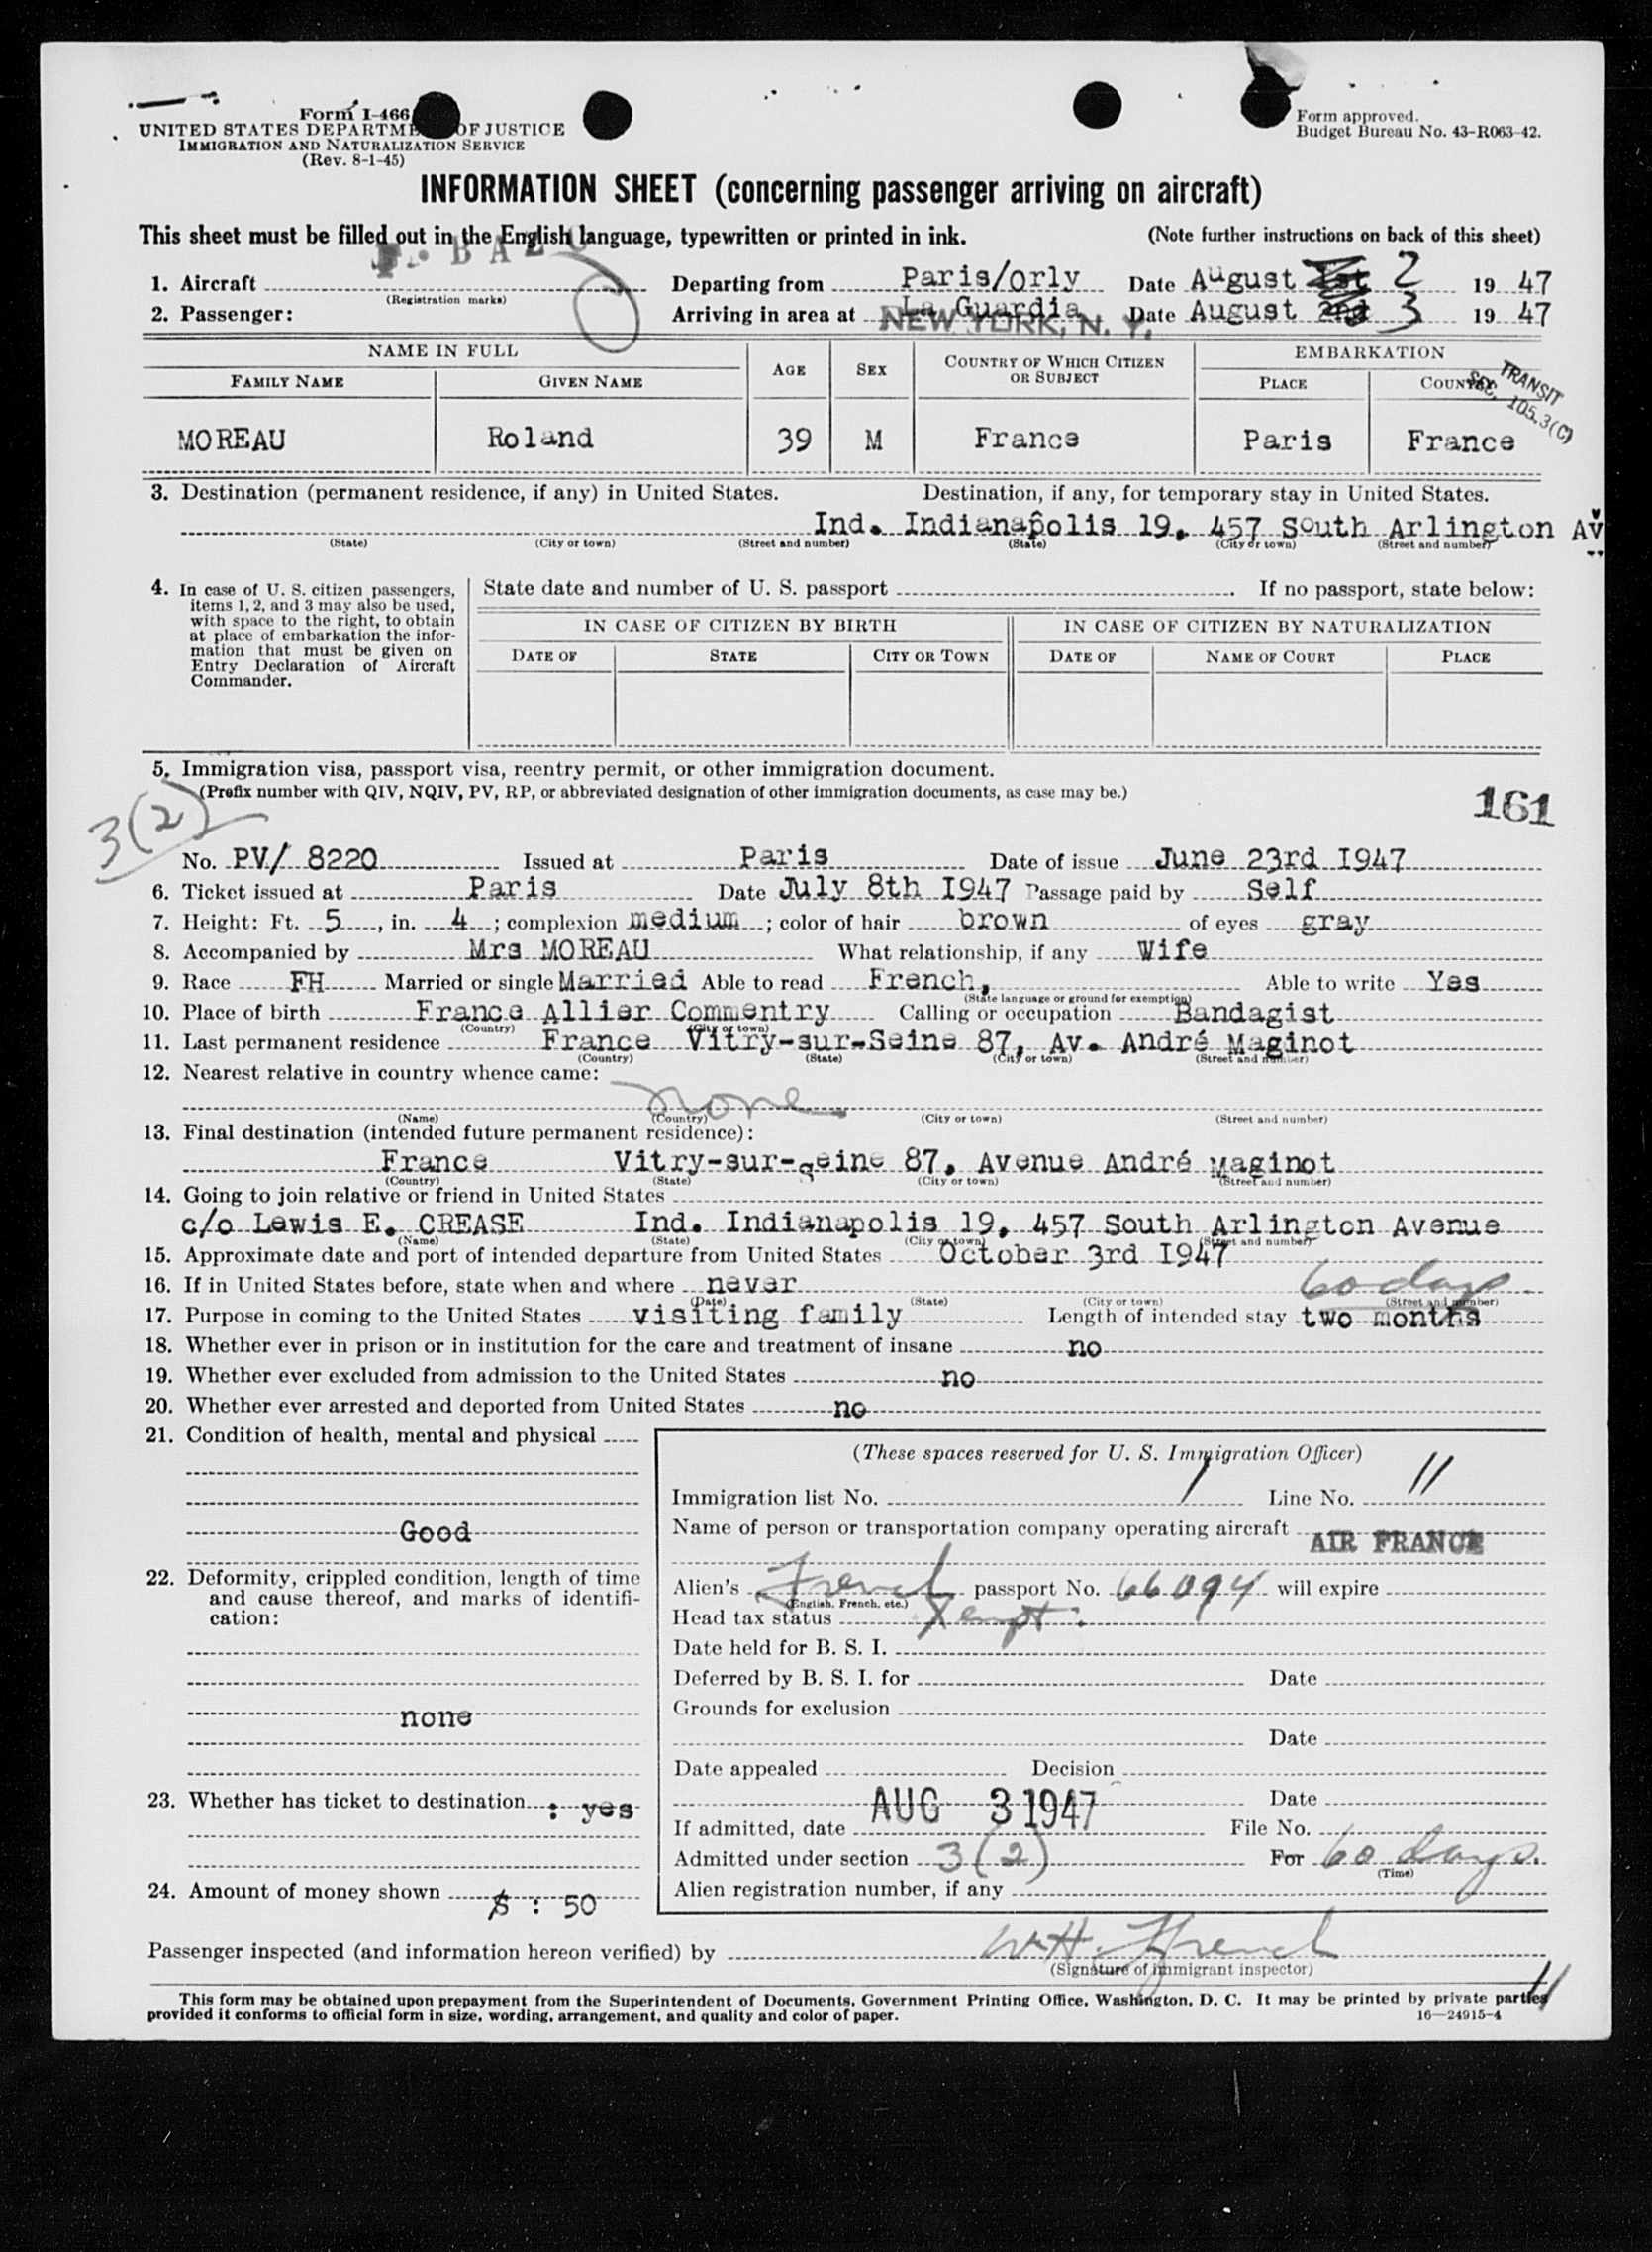 Form I-466
UNITED STATES DEPARTME OF JUSTICE
IMMIGRATION AND NATURALIZATION SERVICE
(Rev. 8-1-45)
Form approved.
Budget Bureau No. 43-R063-42.
INFORMATION SHEET (concerning passenger arriving on aircraft)
This sheet must be filled out in the English language, typewritten or printed in ink. (Note further instructions on back of this sheet)
1. Aircraft Departing from Paris/Orly Date August 1st 2 19 47
(Registration marks)
2. Passenger: Arriving in area at La Guardia NEW YORK, N. Y. Date August 2nd 3 19 47
NAME IN FULL AGE SEX COUNTRY OF WHICH CITIZEN OR SUBJECT EMBARKATION
FAMILY NAME GIVEN NAME PLACE COUNTRY
TRANSIT
SEC. 105.3(C)
MOREAU Roland 39 M France Paris France
3. Destination (permanent residence, if any) in United States. Destination, if any, for temporary stay in United States.
Ind. Indianapolis 19, 457 South Arlington Av
(State) (City or town) (Street and number) (State) (City or town) (Street and number)
4. In case of U. S. citizen passengers, items 1, 2, and 3 may also be used, with space to the right, to obtain at place of embarkation the information that must be given on Entry Declaration of Aircraft Commander.
State date and number of U. S. passport . If no passport, state below:
IN CASE OF CITIZEN BY BIRTH IN CASE OF CITIZEN BY NATURALIZATION
DATE OF STATE CITY OR TOWN DATE OF NAME OF COURT PLACE
5. Immigration visa, passport visa, reentry permit, or other immigration document.
(Prefix number with QIV, NQIV, PV, RP, or abbreviated designation of other immigration documents, as case may be.)
3(2)
161
No. PV/ 8220 Issued at Paris Date of issue June 23rd I947
6. Ticket issued at Paris Date July 8th I947 Passage paid by Self
7. Height: Ft. 5, in. 4; complexion medium; color of hair brown of eyes gray
8. Accompanied by Mrs MOREAU What relationship, if any Wife
9. Race FH Married or single Married Able to read French, Able to write Yes
(State language or ground for exemption)
10. Place of birth France Allier Commentry Calling or occupation Bandagist
(Country) (City or town)
11. Last permanent residence France Vitry-sur-Seine 87, Av. André Maginot
(Country) (State) (City or town) (Street and number)
12. Nearest relative in country whence came:
none
(Name) (Country) (City or town) (Street and number)
13. Final destination (intended future permanent residence):
France Vitry-sur-Seine 87, Avenue André Maginot
(Country) (State) (City or town) (Street and number)
14. Going to join relative or friend in United States
c/o Lewis E. CREASE Ind. Indianapolis 19, 457 South Arlington Avenue
(Name) (State) (City or town) (Street and number)
15. Approximate date and port of intended departure from United States October 3rd I947
16. If in United States before, state when and where never 60 days
(Date) (State) (City or town) (Street and number)
17. Purpose in coming to the United States visiting family Length of intended stay two months
18. Whether ever in prison or in institution for the care and treatment of insane no
19. Whether ever excluded from admission to the United States no
20. Whether ever arrested and deported from United States no
21. Condition of health, mental and physical
Good
22. Deformity, crippled condition, length of time and cause thereof, and marks of identification:
none
23. Whether has ticket to destination : yes
24. Amount of money shown $ : 50
(These spaces reserved for U. S. Immigration Officer)
Immigration list No. 1 Line No. 11
Name of person or transportation company operating aircraft AIR FRANCE
Alien's French passport No. 66094 will expire
(English, French, etc.)
Head tax status Xempt.
Date held for B. S. I.
Deferred by B. S. I. for Date
Grounds for exclusion
Date
Date appealed Decision
Date
If admitted, date AUG 3 1947 File No.
Admitted under section 3(2) For 60 days.
(Time)
Alien registration number, if any
Passenger inspected (and information hereon verified) by W.H. French
(Signature of immigrant inspector)
11
This form may be obtained upon prepayment from the Superintendent of Documents, Government Printing Office, Washington, D. C. It may be printed by private parties
provided it conforms to official form in size, wording, arrangement, and quality and color of paper.
16—24915-4